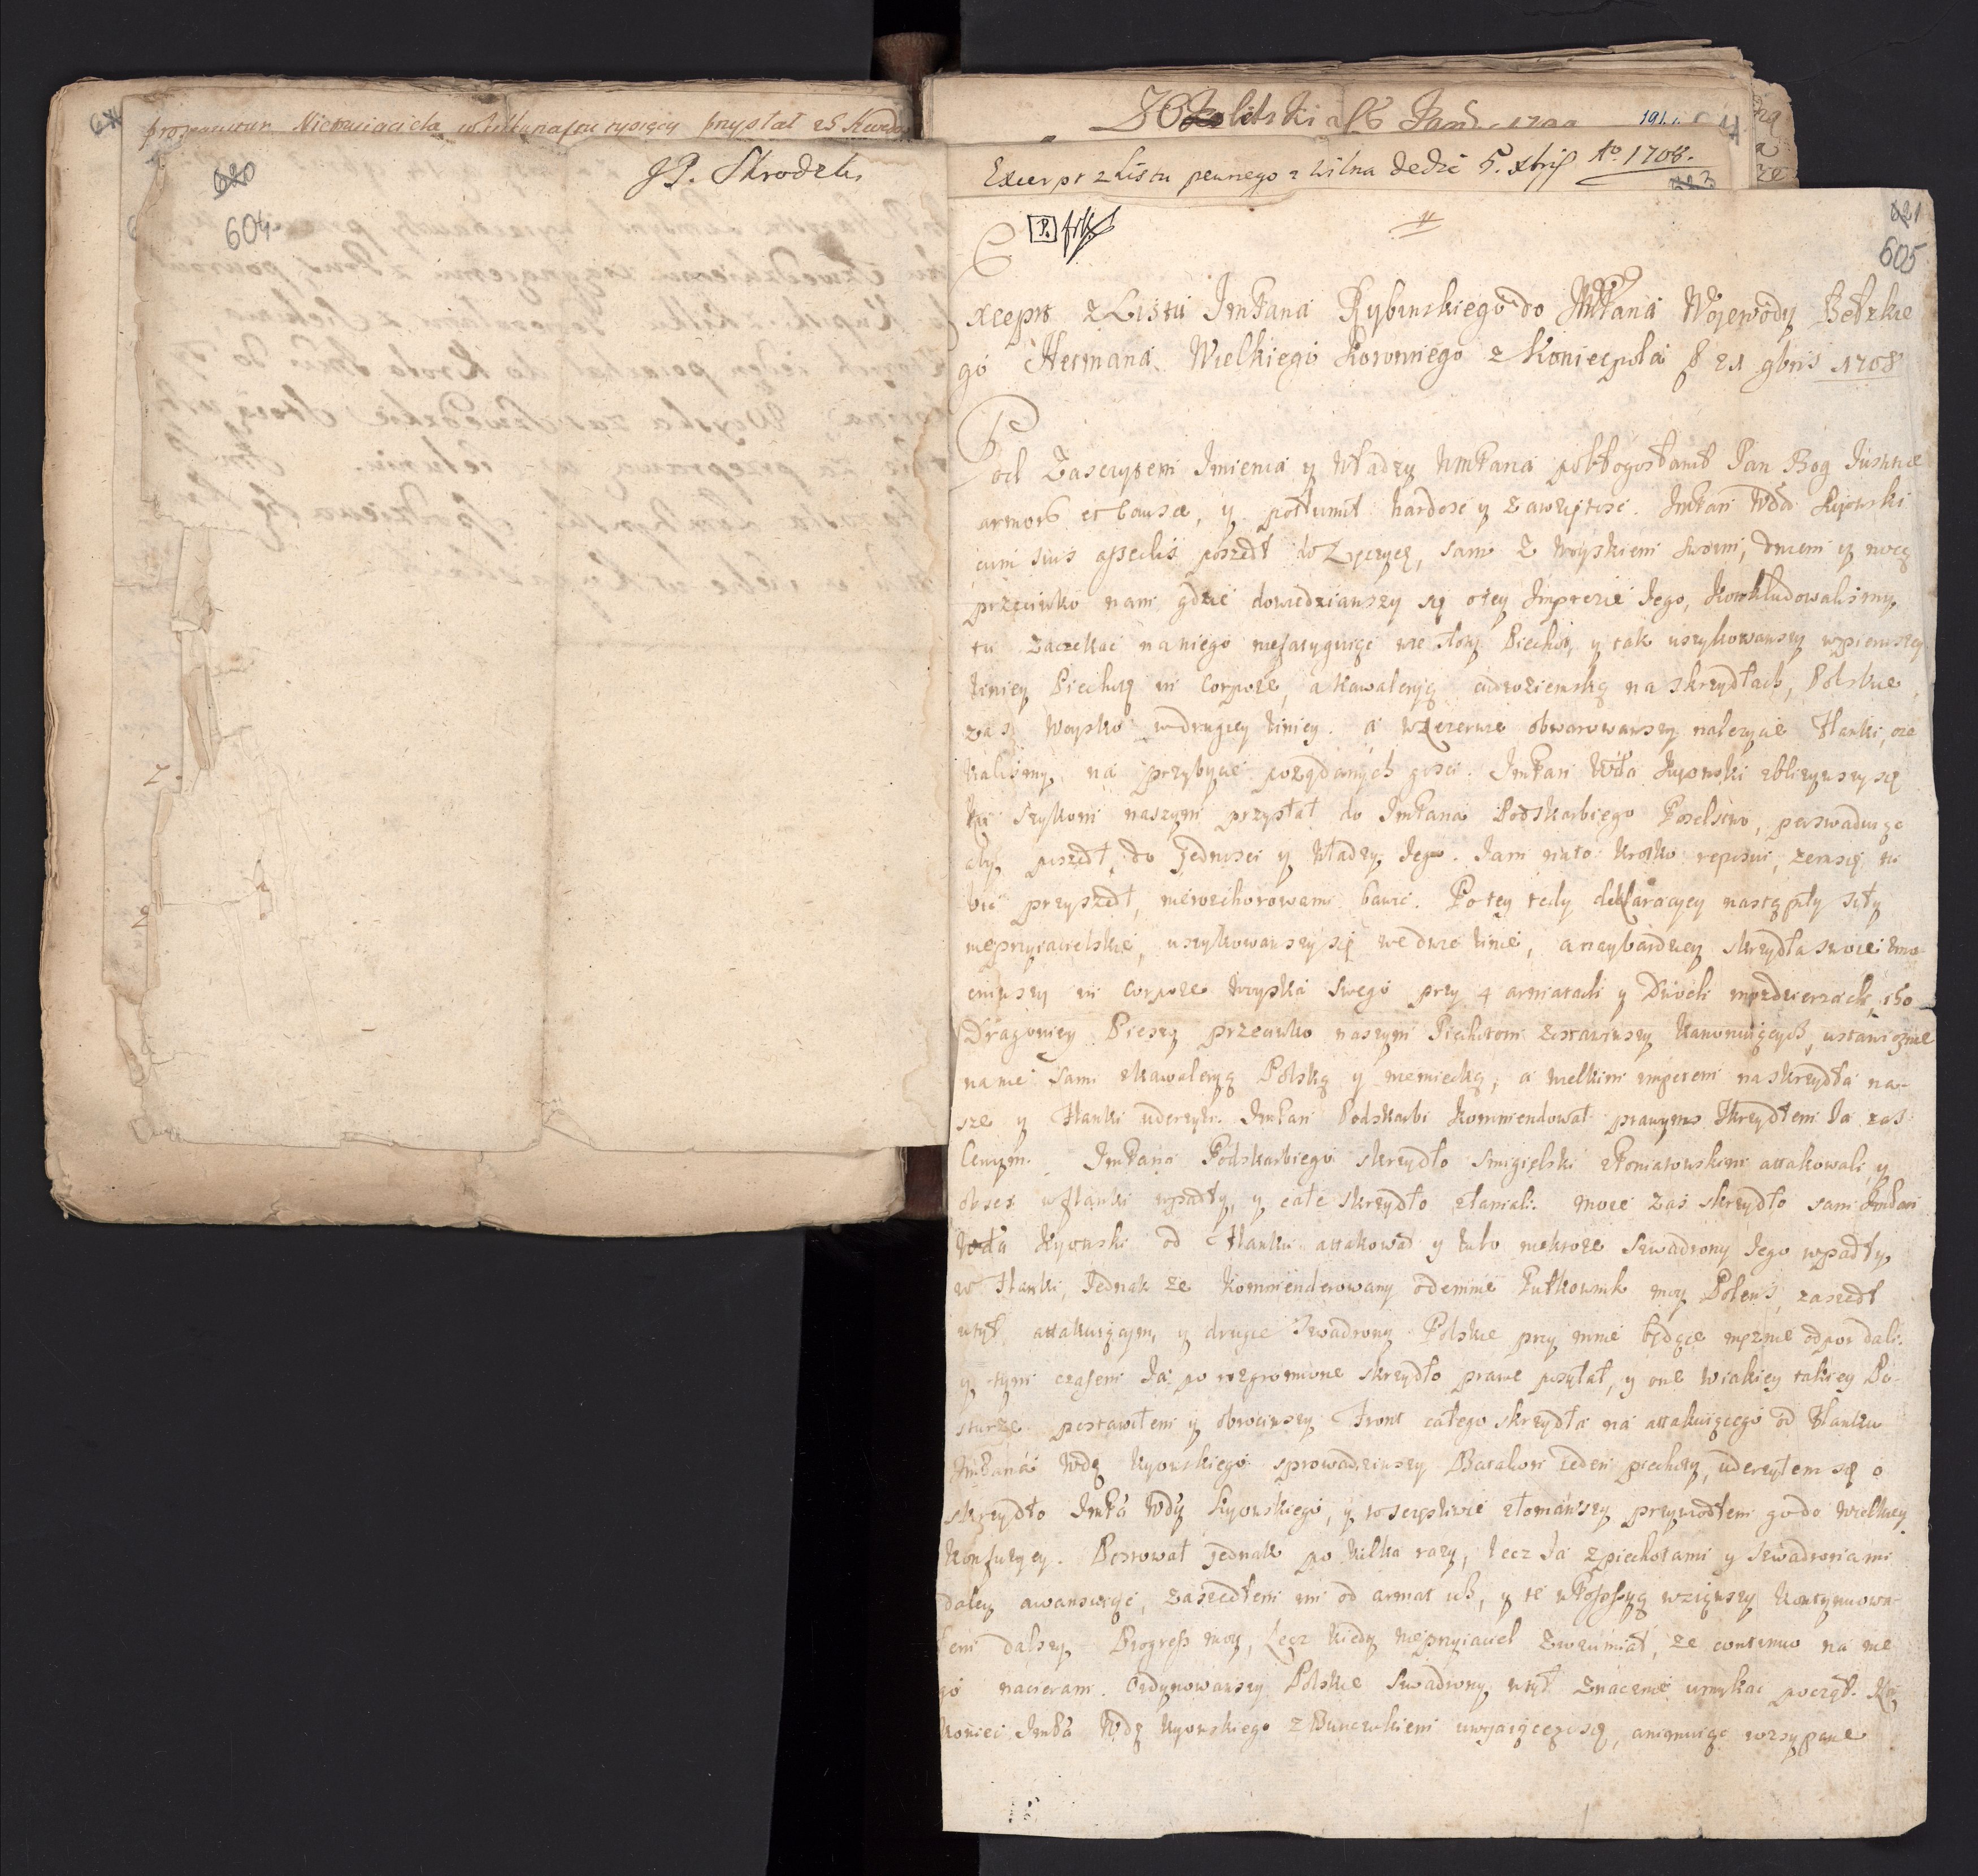 prosequitur Nieprzyiaciela w kilkunastu tysięcy przysłał 25 Szwed
620
604
JP. Skrodzki
191.
Excerpt z Listu pewnego z Wilna dedie 5. xbris Ao. 1708.
623
621
605
Excerpt z Listu JmPana Rybinskiego do JWPana Woiewody Bełzkie
go Hetmana Wielkiego Koronnego z Koniecpola d 21 9bris 1708
Pod Zasczytem Imienia y Władzy WmPana pobłogosławił Pan Bog Iustitiæ
armorum et Causæ, y potłumił hardosc y zawziętosc. JmPan Wda Kijowski
cum suis asseclis poszedł do Łęczycę, sam z woyskiem swoim, dniem y nocą
przeciwko nam, gdzie dowiedziawszy się o tey Imprezie Jego, konkludowalismy
tu zaczekac na niego niefatyguiąc Piechoty, y tak uszykowawszy w pierwszey
liniey Piechotę in Corpore, a Kawaleryą cudzoziemską na skrzydłach, Polskie
zas Woysko w drugiey liniey. a obwarowawszy należycie Flanki, cze
kalismy na przybycie pożądanych gosci. JmPan Wda Kijowski zbliżywszy się
ku Szykom naszym przysłał do JmPana Podskarbiego Poselstwo, perswaduiąc
aby poszedł do Jednosci y Władzy Jego. Jam na to krotko repesui, żem się tu
bić przyszedł, nie rozhoworami bawić. Po tey tedy deklaracyey nastąpiły siły
nieprzyiacielskie, uszykowawszy się we dwie linie, a naybardziey skrzydła swoie zmo-
cniwszy in corpore Woyska swego przy 4 armatach y Dwoch mozdzierzach, sto
Dragoniey Pieszey przeciwko naszym Piechotom zostawiwszy kanonuiących, ustawicznie
na nie sam z kawaleryą Polską y niemiecką, a wielkim impetem na skrzydła na-
sze y Flanki uderzyli. JmPan Podskarbi kommendował prawym skrzydłem Ja zas
lewym. JmPana Podskarbiego skrzydło Smigielski z Poniatowskim attakowali y
obces w flanki wpadły, y całe skrzydło złamali. moie zas skrzydło sam JmPan
Wda Kijowski od Flanku attakował y lubo niektore szwadrony Jego wpadły
w Flanki, Jednak że kommenderowany odemnie Pułkownik moy Polens, zaszedł
w tył attakuiącym, y drugie Szwadrony Polskie przy mnie będące mężnie odpor dali.
y tym czasem Ja po rozgromione skrzydło prawe posyłał, y one w iakiey takiey Po-
sturze postawiłem y obrociwszy Front całego skrzydła na attakuiącego od Flanku
JmPana Wdę Kijowskiego sprowadziwszy Batalion ieden piechoty, uderzyłem się o
skrzydło JmPa Wdy Kijowskiego, y to szczęsliwie złomawszy przywiodłem go do wielkiey
konfuzyey. Postował jednak po kilka razy, lecz Ja z piechotami y szwadronami
daley awansuiąc, zaszedłem mu od armat ich, y te w Possessyą wziąwszy kontynuowa-
łem dalszy Progress moy, Lecz kiedy Nieprzyiaciel zrozumiał, że continuo na nie
go nacieram. Ordynowawszy Polskie Szwadrony w tył znacznie umykac począł. Na
koniec JmPa Wdę Kijowskiego z Bunczukiem uwiiaiącego się, animuiąc rozsypane